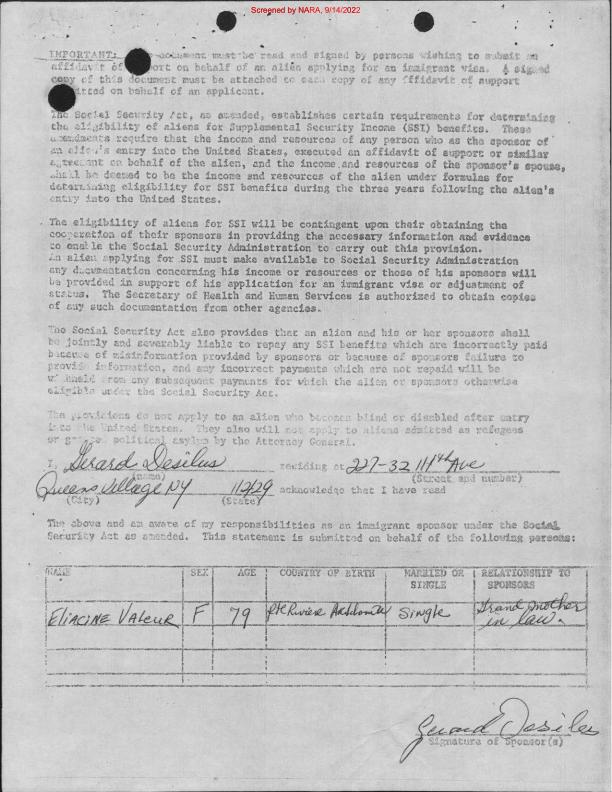 Screened by NARA, 9/14/2022
IMPORTANT: document must be read and signed by persons wishing to submit an
affidavit of ort on behalf of an alien applying for an immigrant visa. A signed
copy of this document must be attached to each copy of any fffidavit of support
itted on behalf of an applicant.
The Social Security Act, as amended, establishes certain requirements for determining
the eligibility of aliens for Supplemental Security Income (SSI) benefits. These
amendments require that the income and resources of any person who as the sponsor of
an alien's entry into the United States, executed an affidavit of support or similar
agreement on behalf of the alien, and the income and resources of the sponsor's spouse,
shall be deemed to be the income and resources of the alien under formulas for
determining eligibility for SSI benefits during the three years following the alien's
entry into the United States.
The eligibility of aliens for SSI will be contingent upon their obtaining the
cooperation of their sponsors in providing the necessary information and evidence
to enable the Social Security Administration to carry out this provision.
An alien applying for SSI must make available to Social Security Administration
any documentation concerning his income or resources or those of his sponsors will
be provided in support of his application for an immigrant visa or adjustment of
status. The Secretary of Health and Human Services is authorized to obtain copies
of any such documentation from other agencies.
The Social Security Act also provides that an alien and his or her sponsors shall
be jointly and severably liable to repay any SSI benefits which are incorrectly paid
because of misinformation provided by sponsors or because of sponsors failure to
provide information, and any incorrect payments which are not repaid will be
withheld from any subsequent payments for which the alien or sponsors otherwise
eligible under the Social Security Act.
The provisions do not apply to an alien who becomes blind or disabled after entry
into the United States. They also will not apply to aliens admitted as refugees
or political asylum by the Attorney General.
I, Gerard Desilus residing at 227-32 114th Ave
(name) (Street and number)
Queens Village NY 11229 acknowledge that I have read
(City) (State)
The above and am aware of my responsibilities as an immigrant sponsor under the Social
Security Act as amended. This statement is submitted on behalf of the following persons:
NAME SEX AGE COUNTRY OF BIRTH MARRIED OR SINGLE RELATIONSHIP TO SPONSORS
Eliacine Valeur F 79 Pte Riviere Single Grand mother in law.
Gerard Desilus
Signature of Sponsor(s)